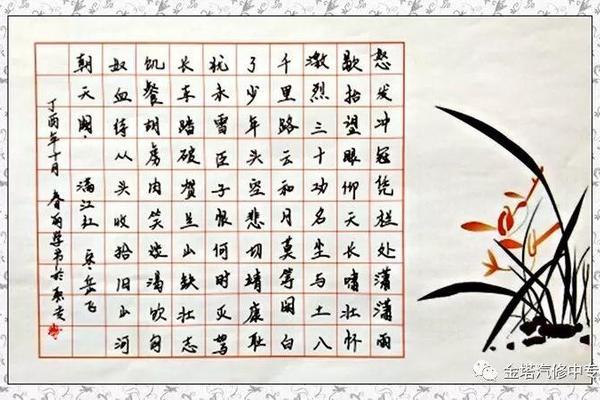 怒发冲冠凭栏处潇潇雨
歇抬望眼仰天长啸壮怀
激烈三十功名尘与土八
千里路云和月莫等闲白
了少年头空悲切靖康耻
犹未雪臣子恨何时灭驾
长车踏破贺兰山缺壮志
饥餐胡虏肉笑谈渴饮匈
奴血待从头收拾旧山河
朝天阙。满江红 宋岳飞
丁酉年十月 春丽学书于
金塔汽修中专